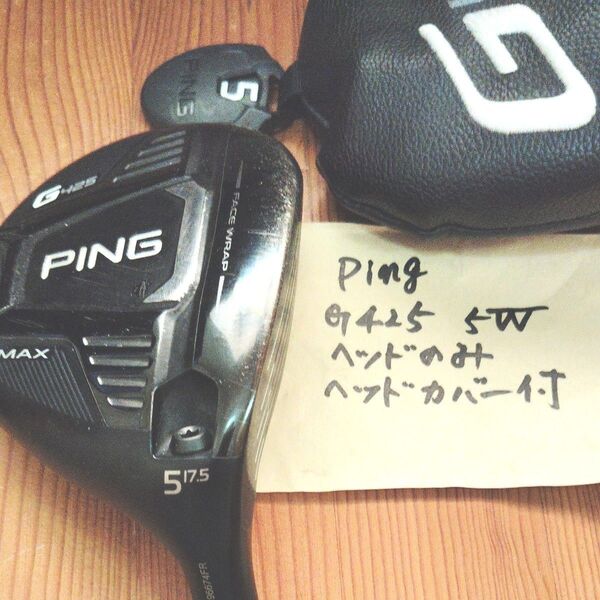 PING
5
G
G425
FACE WRAP
PING
MAX
5 17.5
96674FR
Ping
G425 5W
ヘッドのみ
ヘッドカバー付